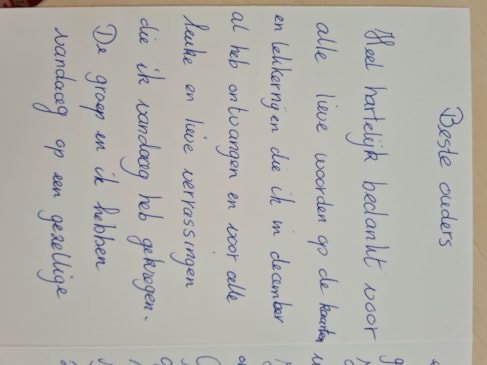 Beste ouders
Heel hartelijk bedankt voor
alle lieve woorden op de kaarten
en lekkernijen die ik in december
al heb ontvangen en voor alle
leuke en lieve verrassingen
die ik vandaag heb gekregen.
De groep en ik hebben
vandaag op een gezellige